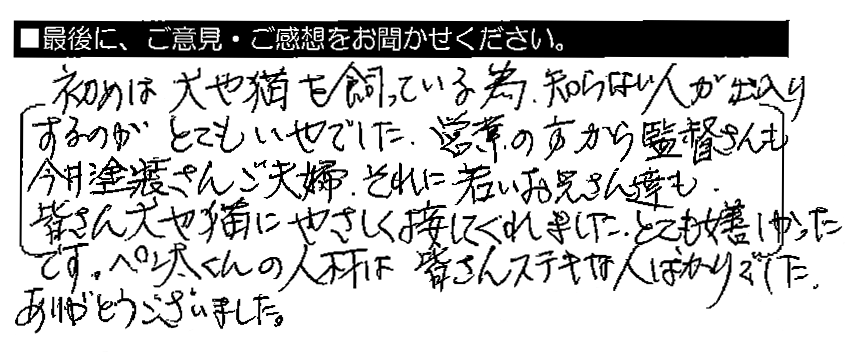 ■最後に、ご意見・ご感想をお聞かせください。
初めは犬や猫を飼っている為、知らない人が出入り
するのがとてもいやでした。営業の方から監督さんも
今井塗装さんご夫婦、それに若いお兄さん達も、
皆さん犬や猫にやさしく接してくれました。とても嬉しかった
です。ペン太くんの人材は皆さんステキな人ばかりでした。
ありがとうございました。